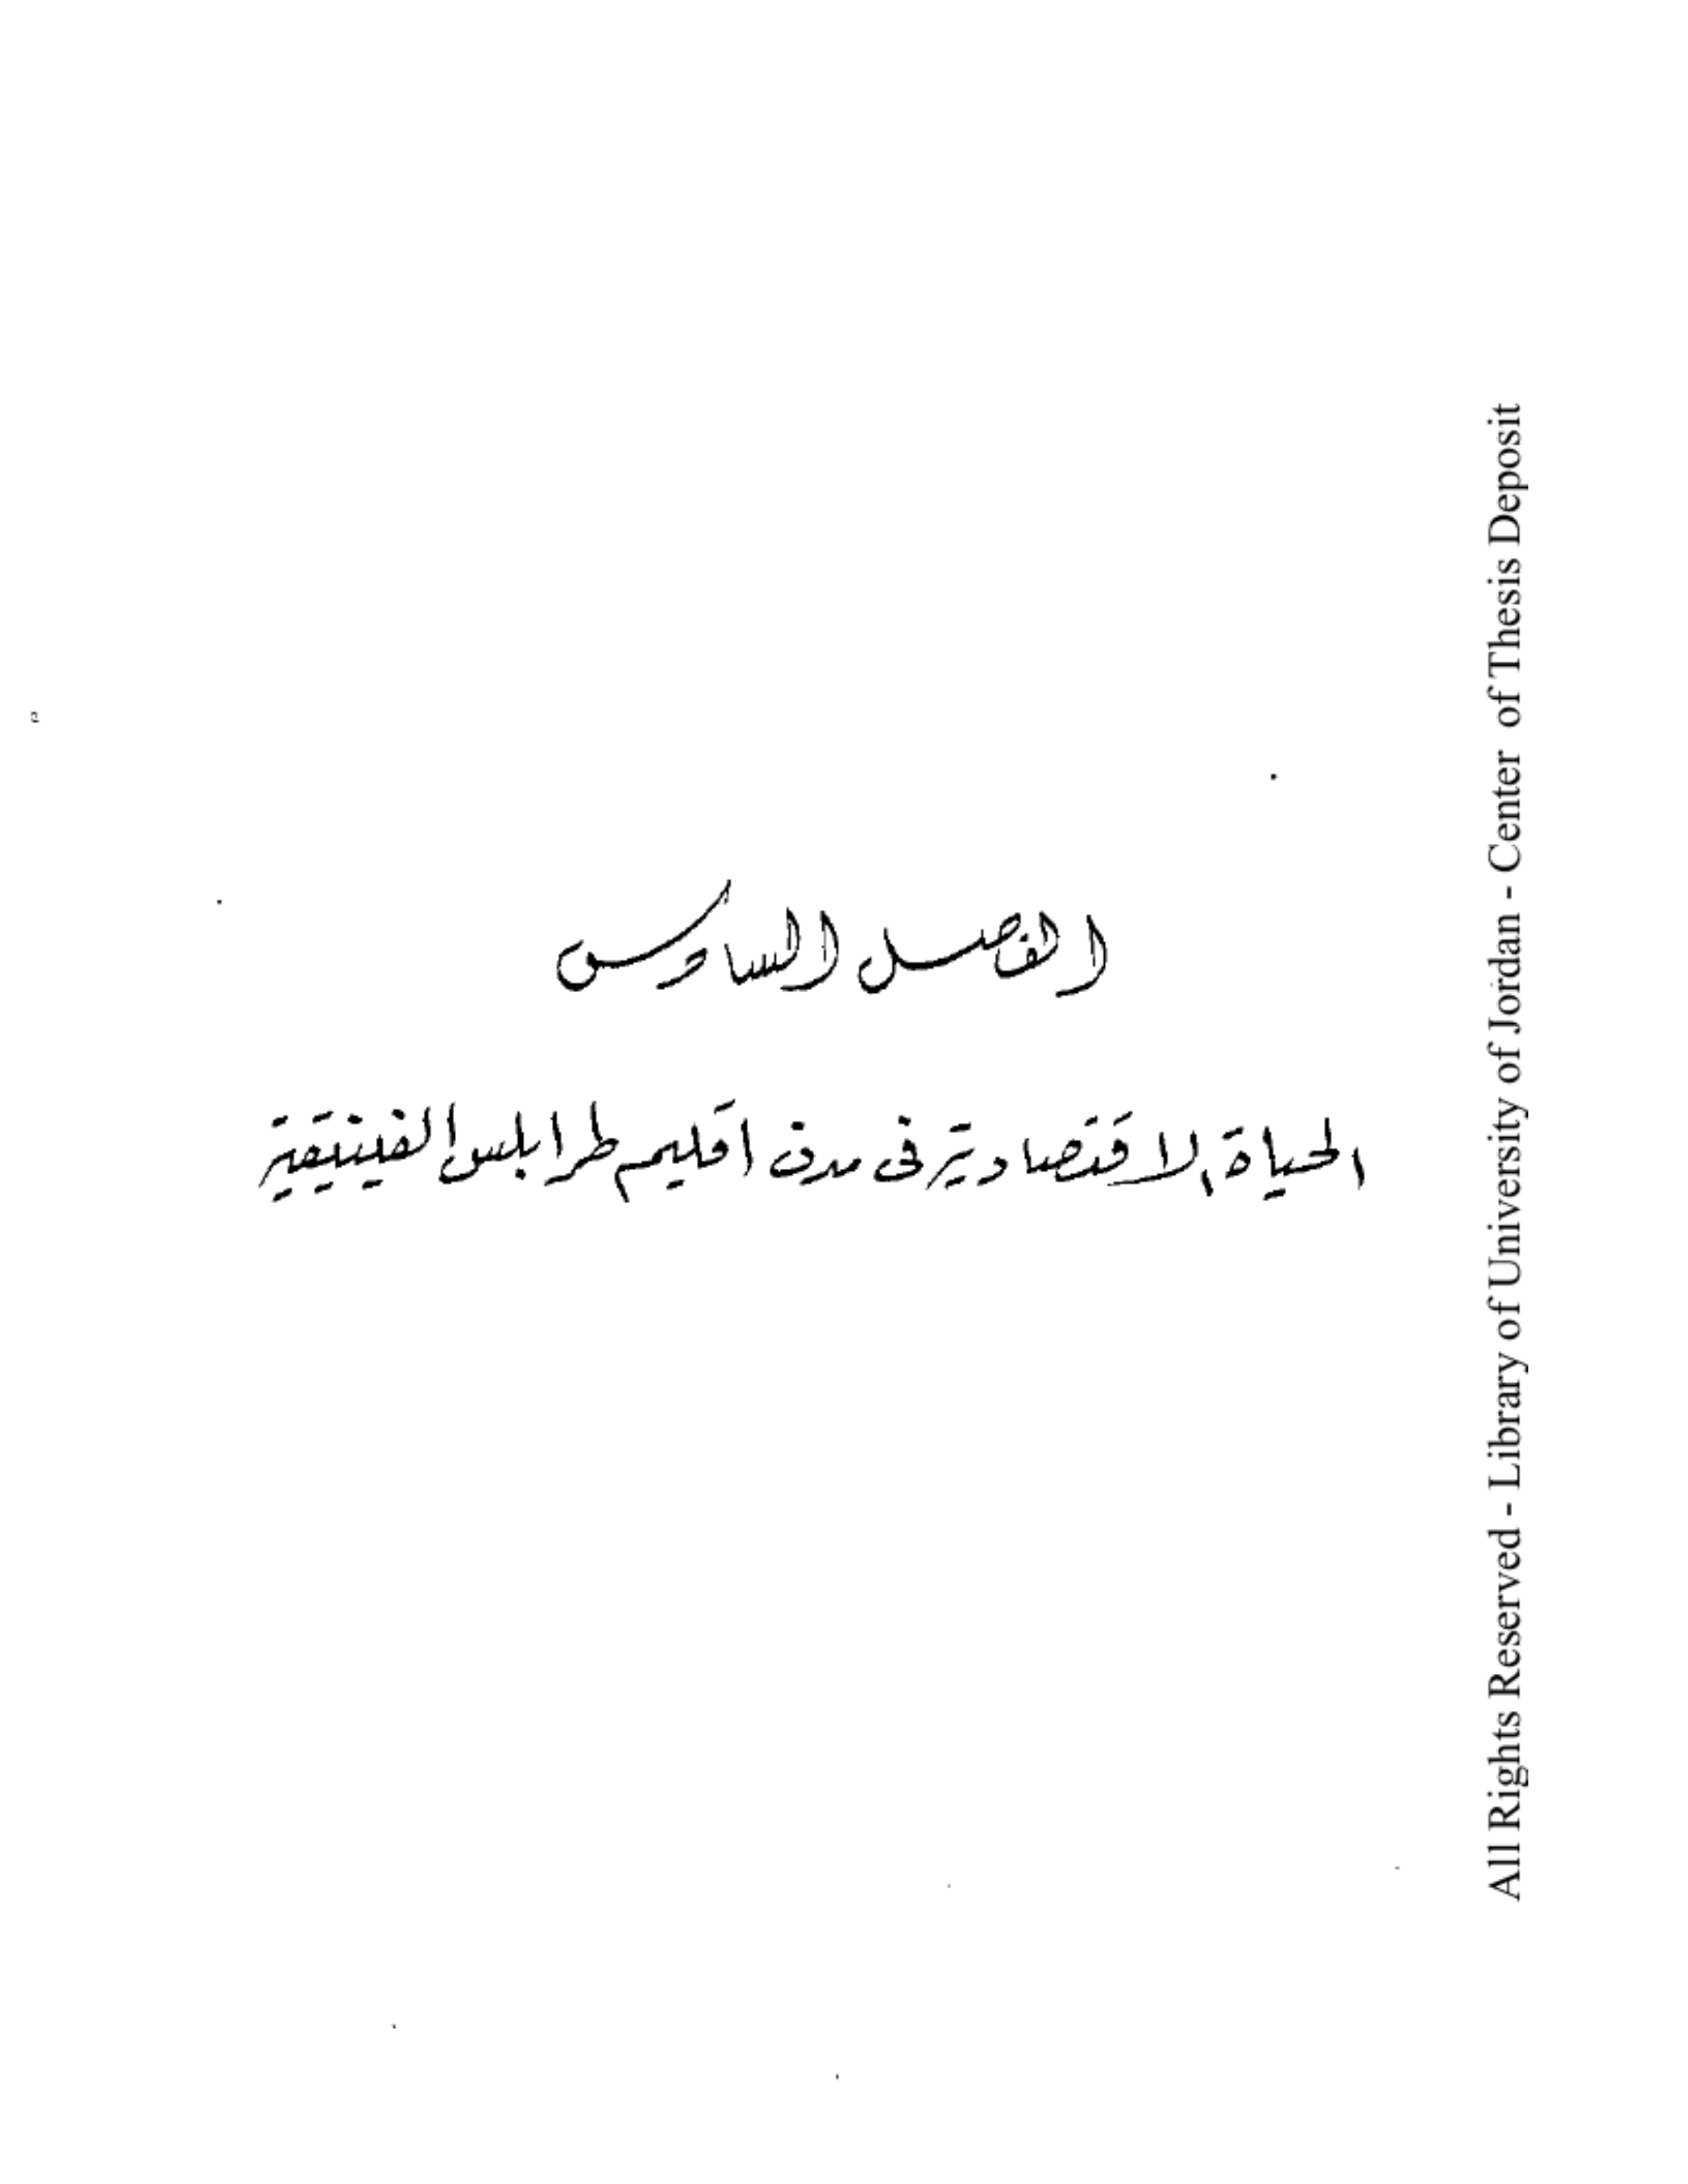 الفصل السادس
الحياة الاقتصادية فى مدن اقليم طرابلس الفينيقية
All Rights Reserved - Library of University of Jordan - Center of Thesis Deposit